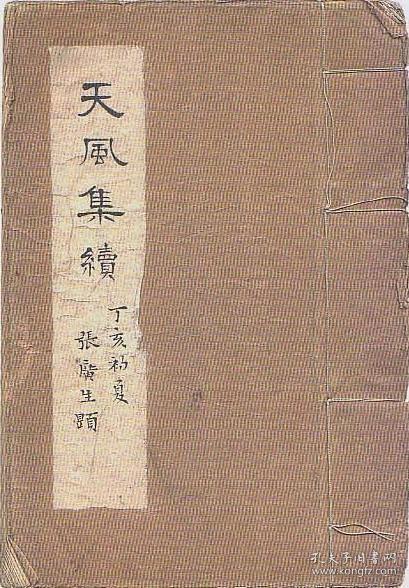 天風集續
丁亥初夏
張廣生題
孔夫子旧书网
www.kongfz.com